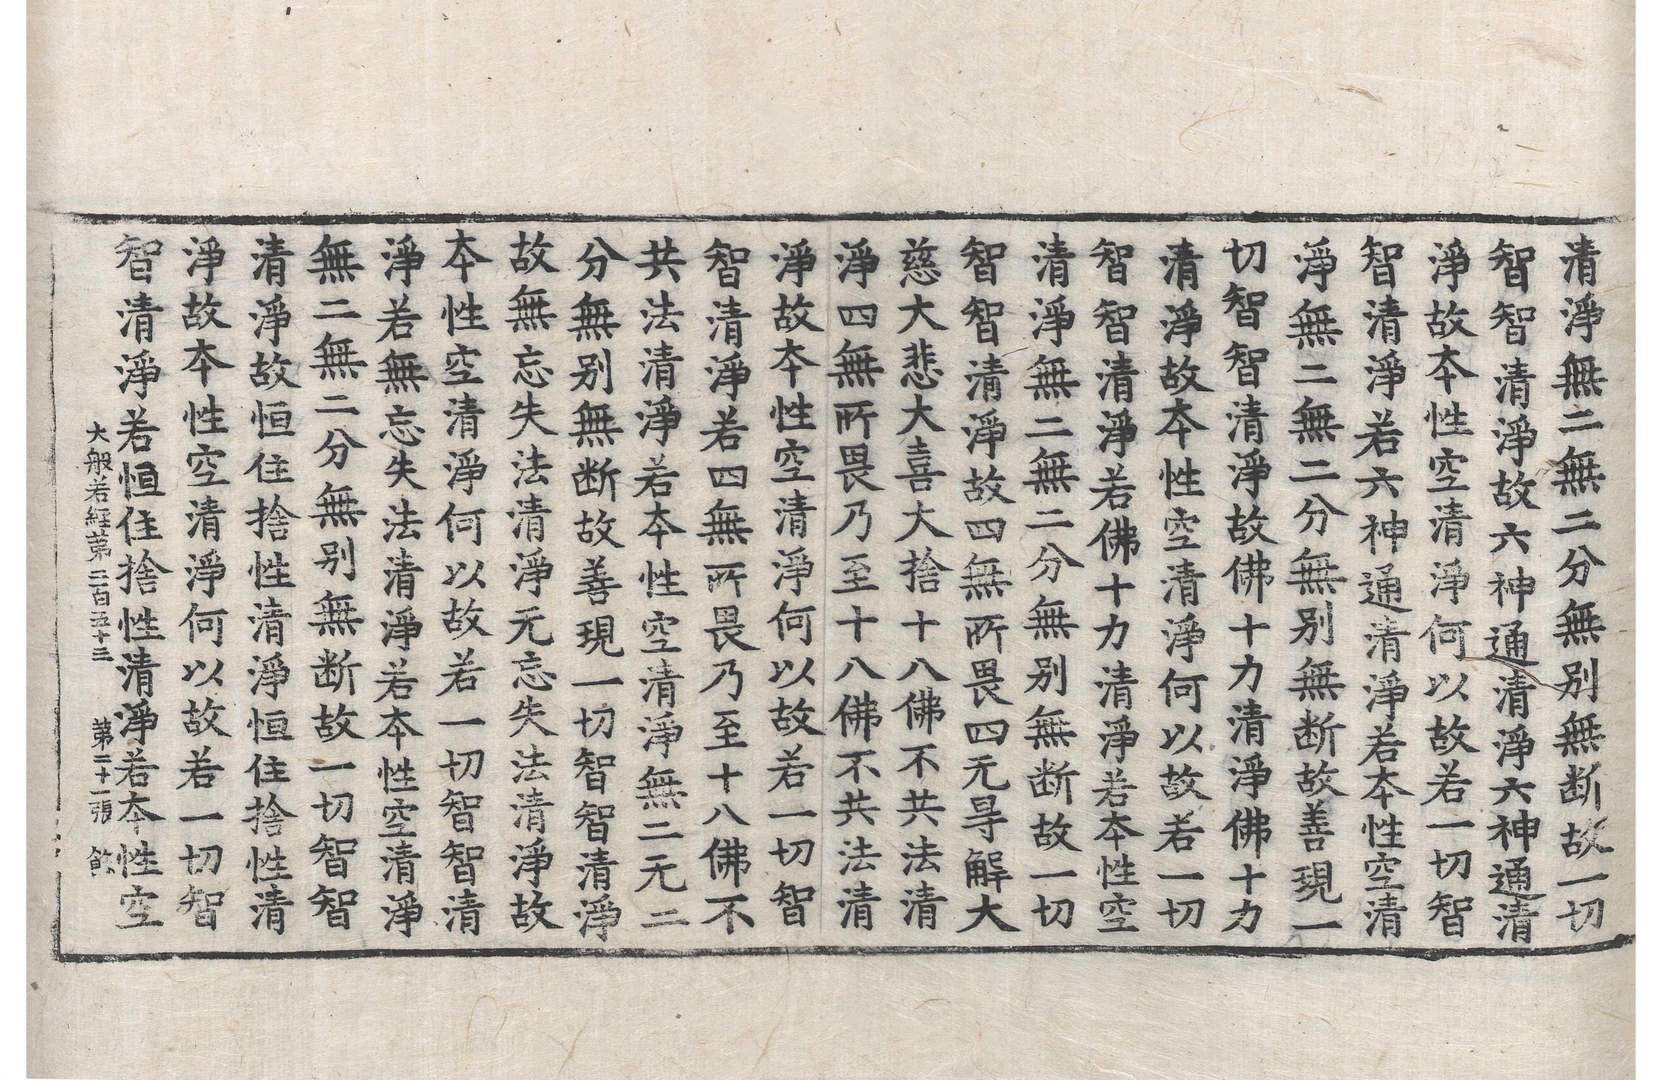 清淨無二無二分無別無断故一切
智智清淨故六神通清淨六神通清
淨故本性空清淨何以故若一切智
智清淨若六神通清淨若本性空清
淨無二無二分無別無断故善現一
切智智清淨故佛十力清淨佛十力
清淨故本性空清淨何以故若一切
智智清淨若佛十力清淨若本性空
清淨無二無二分無別無断故一切
智智清淨故四無所畏四无㝵解大
慈大悲大喜大捨十八佛不共法清
淨四無所畏乃至十八佛不共法清
淨故本性空清淨何以故若一切智
智清淨若四無所畏乃至十八佛不
共法清淨若本性空清淨無二无二
分無別無断故善現一切智智清淨
故無忘失法清淨无忘失法清淨故
本性空清淨何以故若一切智智清
淨若無忘失法清淨若本性空清淨
無二無二分無別無断故一切智智
清淨故恒住捨性清淨恒住捨性清
淨故本性空清淨何以故若一切智
智清淨若恒住捨性清淨若本性空
大般若経第二百五十三 第二十一張